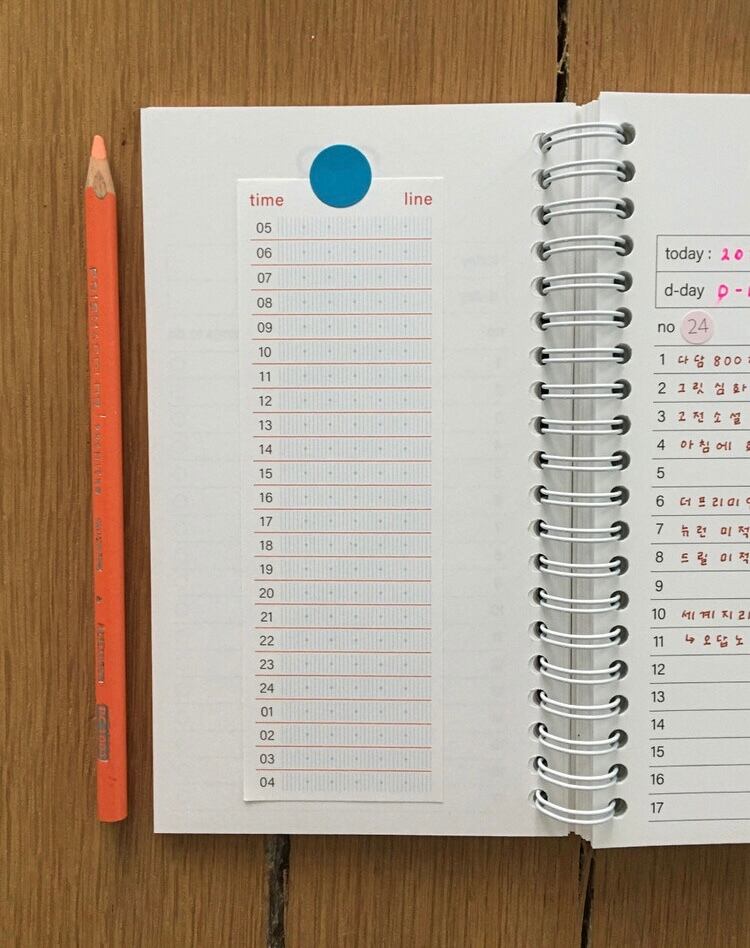 time line
05
06
07
08
09
10
11
12
13
14
15
16
17
18
19
20
21
22
23
24
01
02
03
04
today : 20
d-day D-
no 24
1 다담 800
2 그릿 심화
3 고전소설
4 아침에
5
6 더프리미
7 뉴런 미적
8 드릴 미적
9
10 세계지리
11 ↳ 오답노
12
13
14
15
16
17